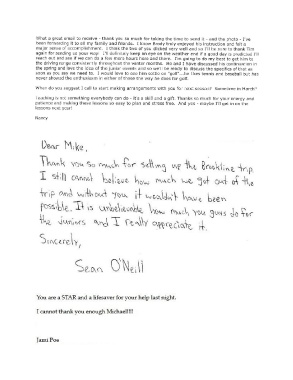 What a great email to receive - thank you so much for taking the time to send it - and the photo - I've
been forwarding it to all my family and friends. I know
major sense of accomplishment. I think the two of you clicked very well and so I'll be sure to thank Tim
again for sending us your way. I'll definitely keep an eye on the weather and if a good day is predicted I'll
reach out and see if we can do a few more hours here and there. I'm going to do my best to get him to
the driving range
the idea of the junior
soon as you let me need to. I would love to see him catch on "golf"
never showed the enthusiasm in either of those the way he does for golf.
What do you suggest I call to start making arrangements with you for "next season? Sometime in March?
Teaching is not something everybody can do - it's a skill and a gift. Thanks so much for your energy and
patience and making these lessons so easy to plan and stress free. And yes - maybe I'll be in on the
lessons next year!
Nancy
Dear Mike,
Thank you so much for setting up the Brookline trip.
I still cannot believe how much we got out of the
trip and without you it wouldn't have been
possible. It is unbelievable how much you guys do for
the juniors and I really appreciate it.
Sincerely,
Sean O'Neill
You are a STAR and a lifesaver for your help last night.
I cannot thank you enough Michael!!!
Jami Poe